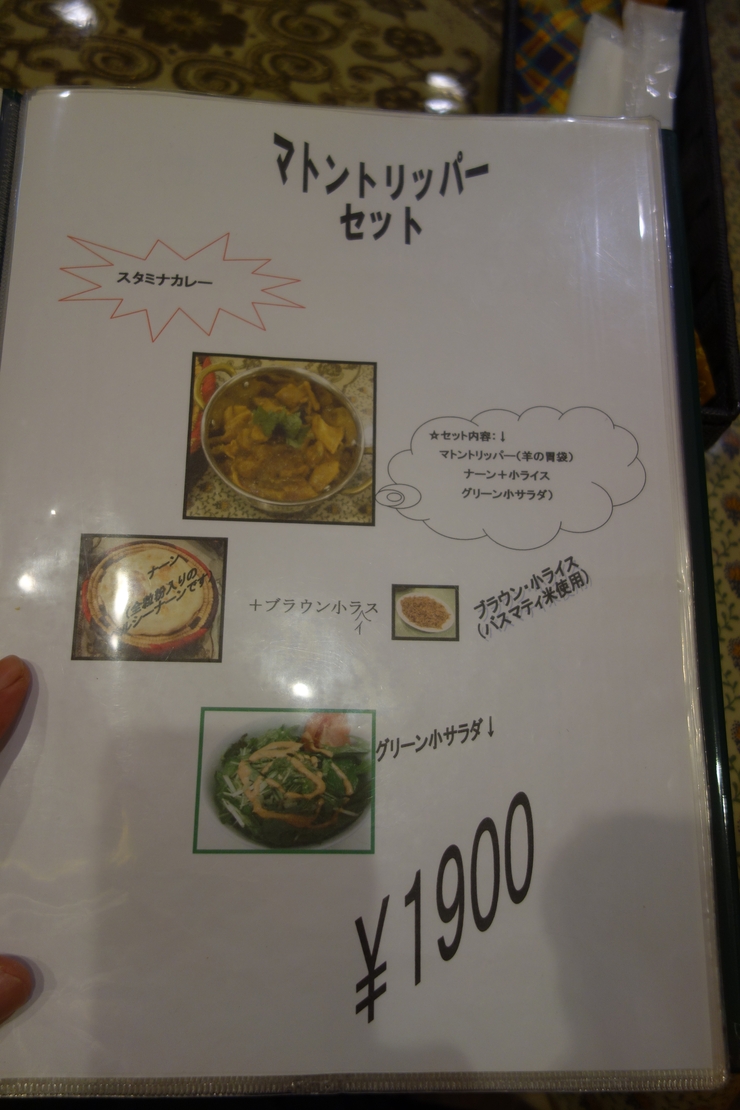 マトントリッパー
セット
スタミナカレー
☆セット内容:↓
マトントリッパー(羊の胃袋)
ナーン+小ライス
グリーン小サラダ)
ナーン
(全粒粉入りの
ルシーナーンです)
+ブラウン小ラス
イ
ブラウン・小ライス
(バスマティ米使用)
グリーン小サラダ↓
¥1900